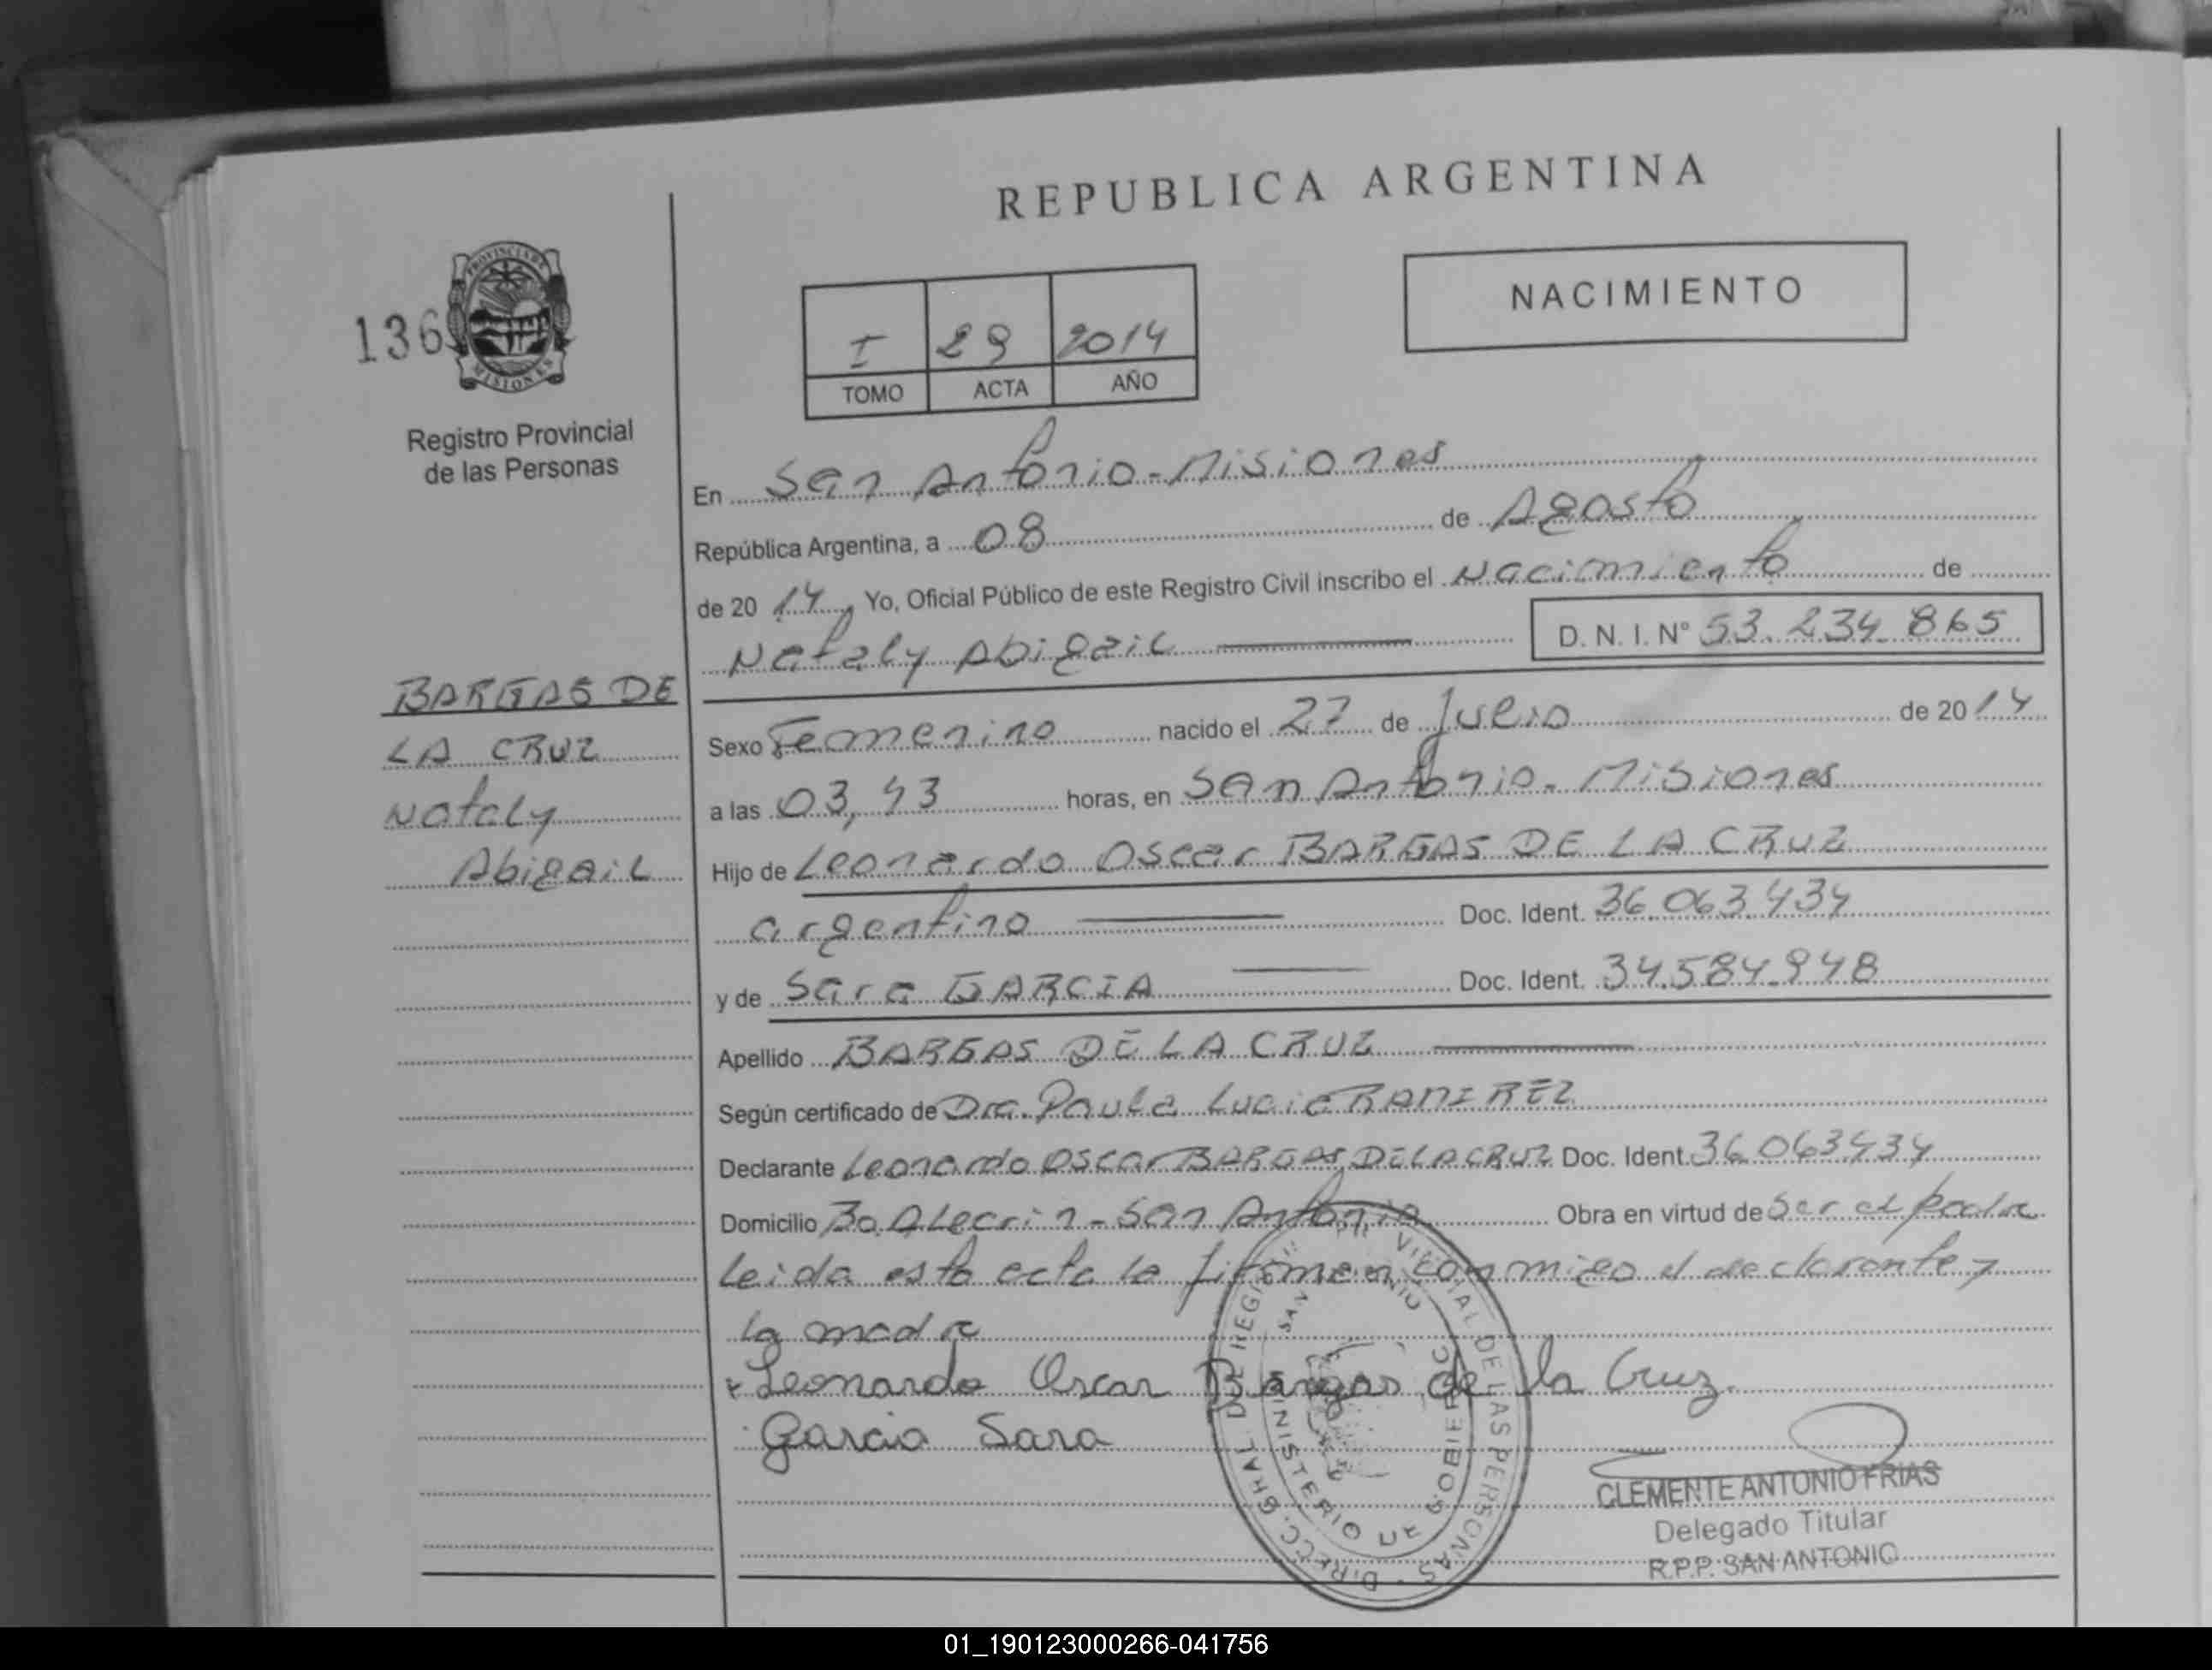 REPUBLICA ARGENTINA
NACIMIENTO
136
PROVINCIA DE
MISIONES
Registro Provincial
de las Personas
I 29 2014
TOMO ACTA AÑO
En San Antonio - Misiones
República Argentina, a 08 de Agosto
de 2014, Yo, Oficial Público de este Registro Civil inscribo el Nacimiento de
Nataly Abigail D. N. I. N° 53.234.865
BARGAS DE
LA CRUZ
Nataly
Abigail
Sexo Femenino nacido el 27 de Julio de 2014
a las 03,43 horas, en San Antonio - Misiones
Hijo de Leonardo Oscar BARGAS DE LA CRUZ
argentino Doc. Ident. 36.063.434
y de Sara GARCIA Doc. Ident. 34.584.948
Apellido BARGAS DE LA CRUZ
Según certificado de Dra. Paula Lucia RAMIREZ
Declarante Leonardo Oscar BARGAS DE LA CRUZ Doc. Ident. 36.063.434
Domicilio Bo. Alecrin - San Antonio Obra en virtud de Ser el padre
Leida esta acta la firman conmigo el declarante y
la madre
Leonardo Oscar Bargas de la Cruz
Garcia Sara
DIRECC. GRAL. DE REGISTRO PROVINCIAL DE LAS PERSONAS
SAN ANTONIO
MINISTERIO DE GOBIERNO
CLEMENTE ANTONIO FRIAS
Delegado Titular
R.P.P. SAN ANTONIO
01_190123000266-041756